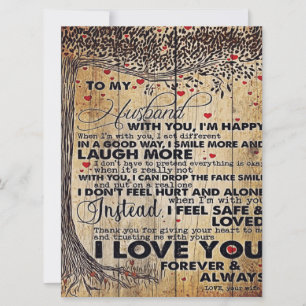 TO MY
Husband
WITH YOU, I'M HAPPY
When I'm with you, I act different
IN A GOOD WAY, I SMILE MORE AND
LAUGH MORE
I don't have to pretend everything is okay
when it's really not
WITH YOU, I CAN DROP THE FAKE SMILE
and put on a real one
I DON'T FEEL HURT AND ALONE
when I'm with you
Instead, I FEEL SAFE &
LOVED
Thank you for giving your heart to me
and trusting me with yours
I LOVE YOU
FOREVER &
ALWAYS
LOVE, your wife